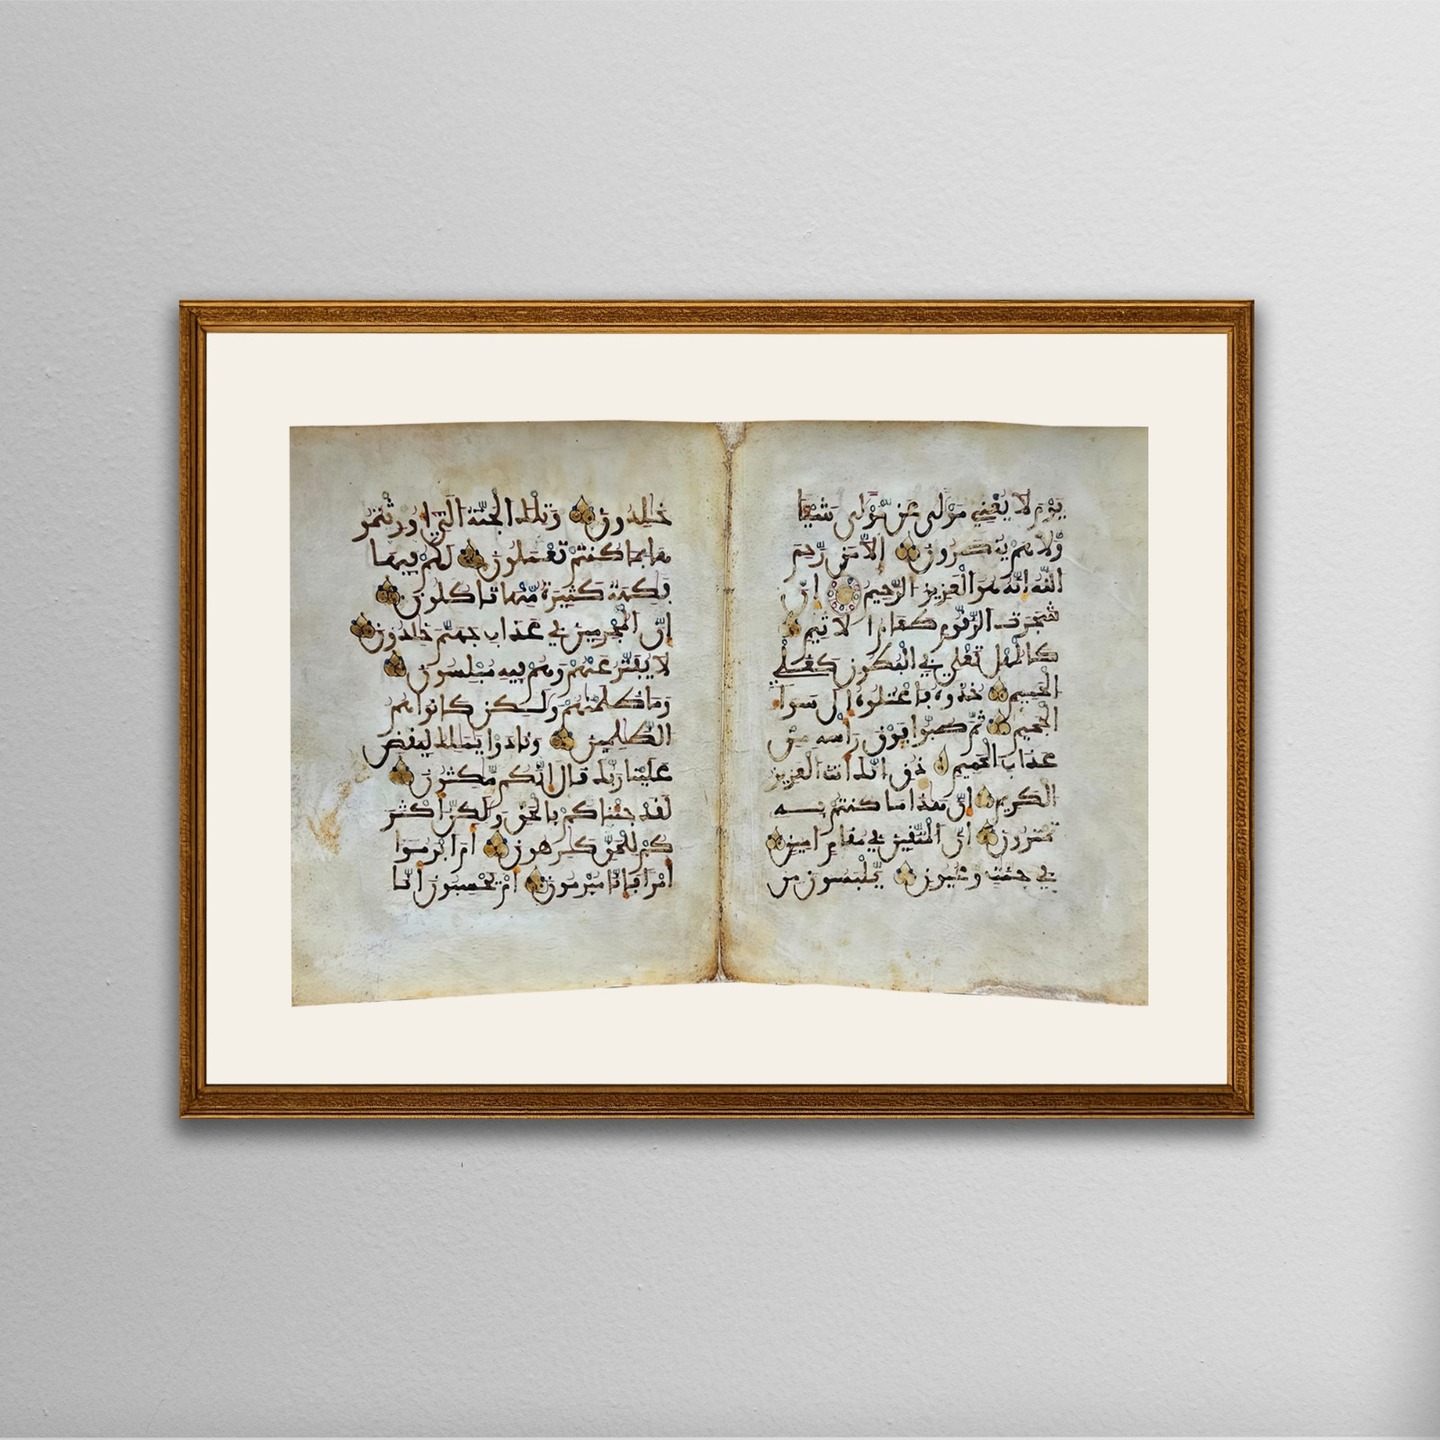 يَوْمَ لَا يُغْنِي مَوْلًى عَن مَّوْلًى شَيْـًٔا
وَلَا هُمْ يُنصَرُونَ إِلَّا مَن رَّحِمَ
اللَّهُ إِنَّهُ هُوَ الْعَزِيزُ الرَّحِيمُ إِنَّ
شَجَرَتَ الزَّقُّومِ طَعَامُ الْأَثِيمِ
كَالْمُهْلِ تَغْلِي فِي الْبُطُونِ كَغَلْيِ
الْحَمِيمِ خُذُوهُ فَاعْتُلُوهُ إِلَى سَوَاءِ
الْجَحِيمِ ثُمَّ صُبُّوا فَوْقَ رَأْسِهِ مِنْ
عَذَابِ الْحَمِيمِ ذُقْ إِنَّكَ أَنتَ الْعَزِيزُ
الْكَرِيمُ إِنَّ هَٰذَا مَا كُنتُم بِهِ
تَمْتَرُونَ إِنَّ الْمُتَّقِينَ فِي مُقَامٍ أَمِينٍ
فِي جَنَّٰتٍ وَعُيُونٍ يَلْبَسُونَ مِن
خَٰلِدُونَ وَتِلْكَ الْجَنَّةُ الَّتِي أُورِثْتُمُو
هَا بِمَا كُنتُمْ تَعْمَلُونَ لَكُمْ فِيهَا
فَٰكِهَةٌ كَثِيرَةٌ مِّنْهَا تَأْكُلُونَ
إِنَّ الْمُجْرِمِينَ فِي عَذَابِ جَهَنَّمَ خَٰلِدُونَ
لَا يُفَتَّرُ عَنْهُمْ وَهُمْ فِيهِ مُبْلِسُونَ
وَمَا ظَلَمْنَٰهُمْ وَلَٰكِن كَانُوا هُمُ
الظَّٰلِمِينَ وَنَادَوْا يَٰمَٰلِكُ لِيَقْضِ
عَلَيْنَا رَبُّكَ قَالَ إِنَّكُم مَّٰكِثُونَ
لَقَدْ جِئْنَٰكُم بِالْحَقِّ وَلَٰكِنَّ أَكْثَرَ
كُمْ لِلْحَقِّ كَٰرِهُونَ أَمْ أَبْرَمُوا
أَمْرًا فَإِنَّا مُبْرِمُونَ أَمْ يَحْسِبُونَ أَنَّا